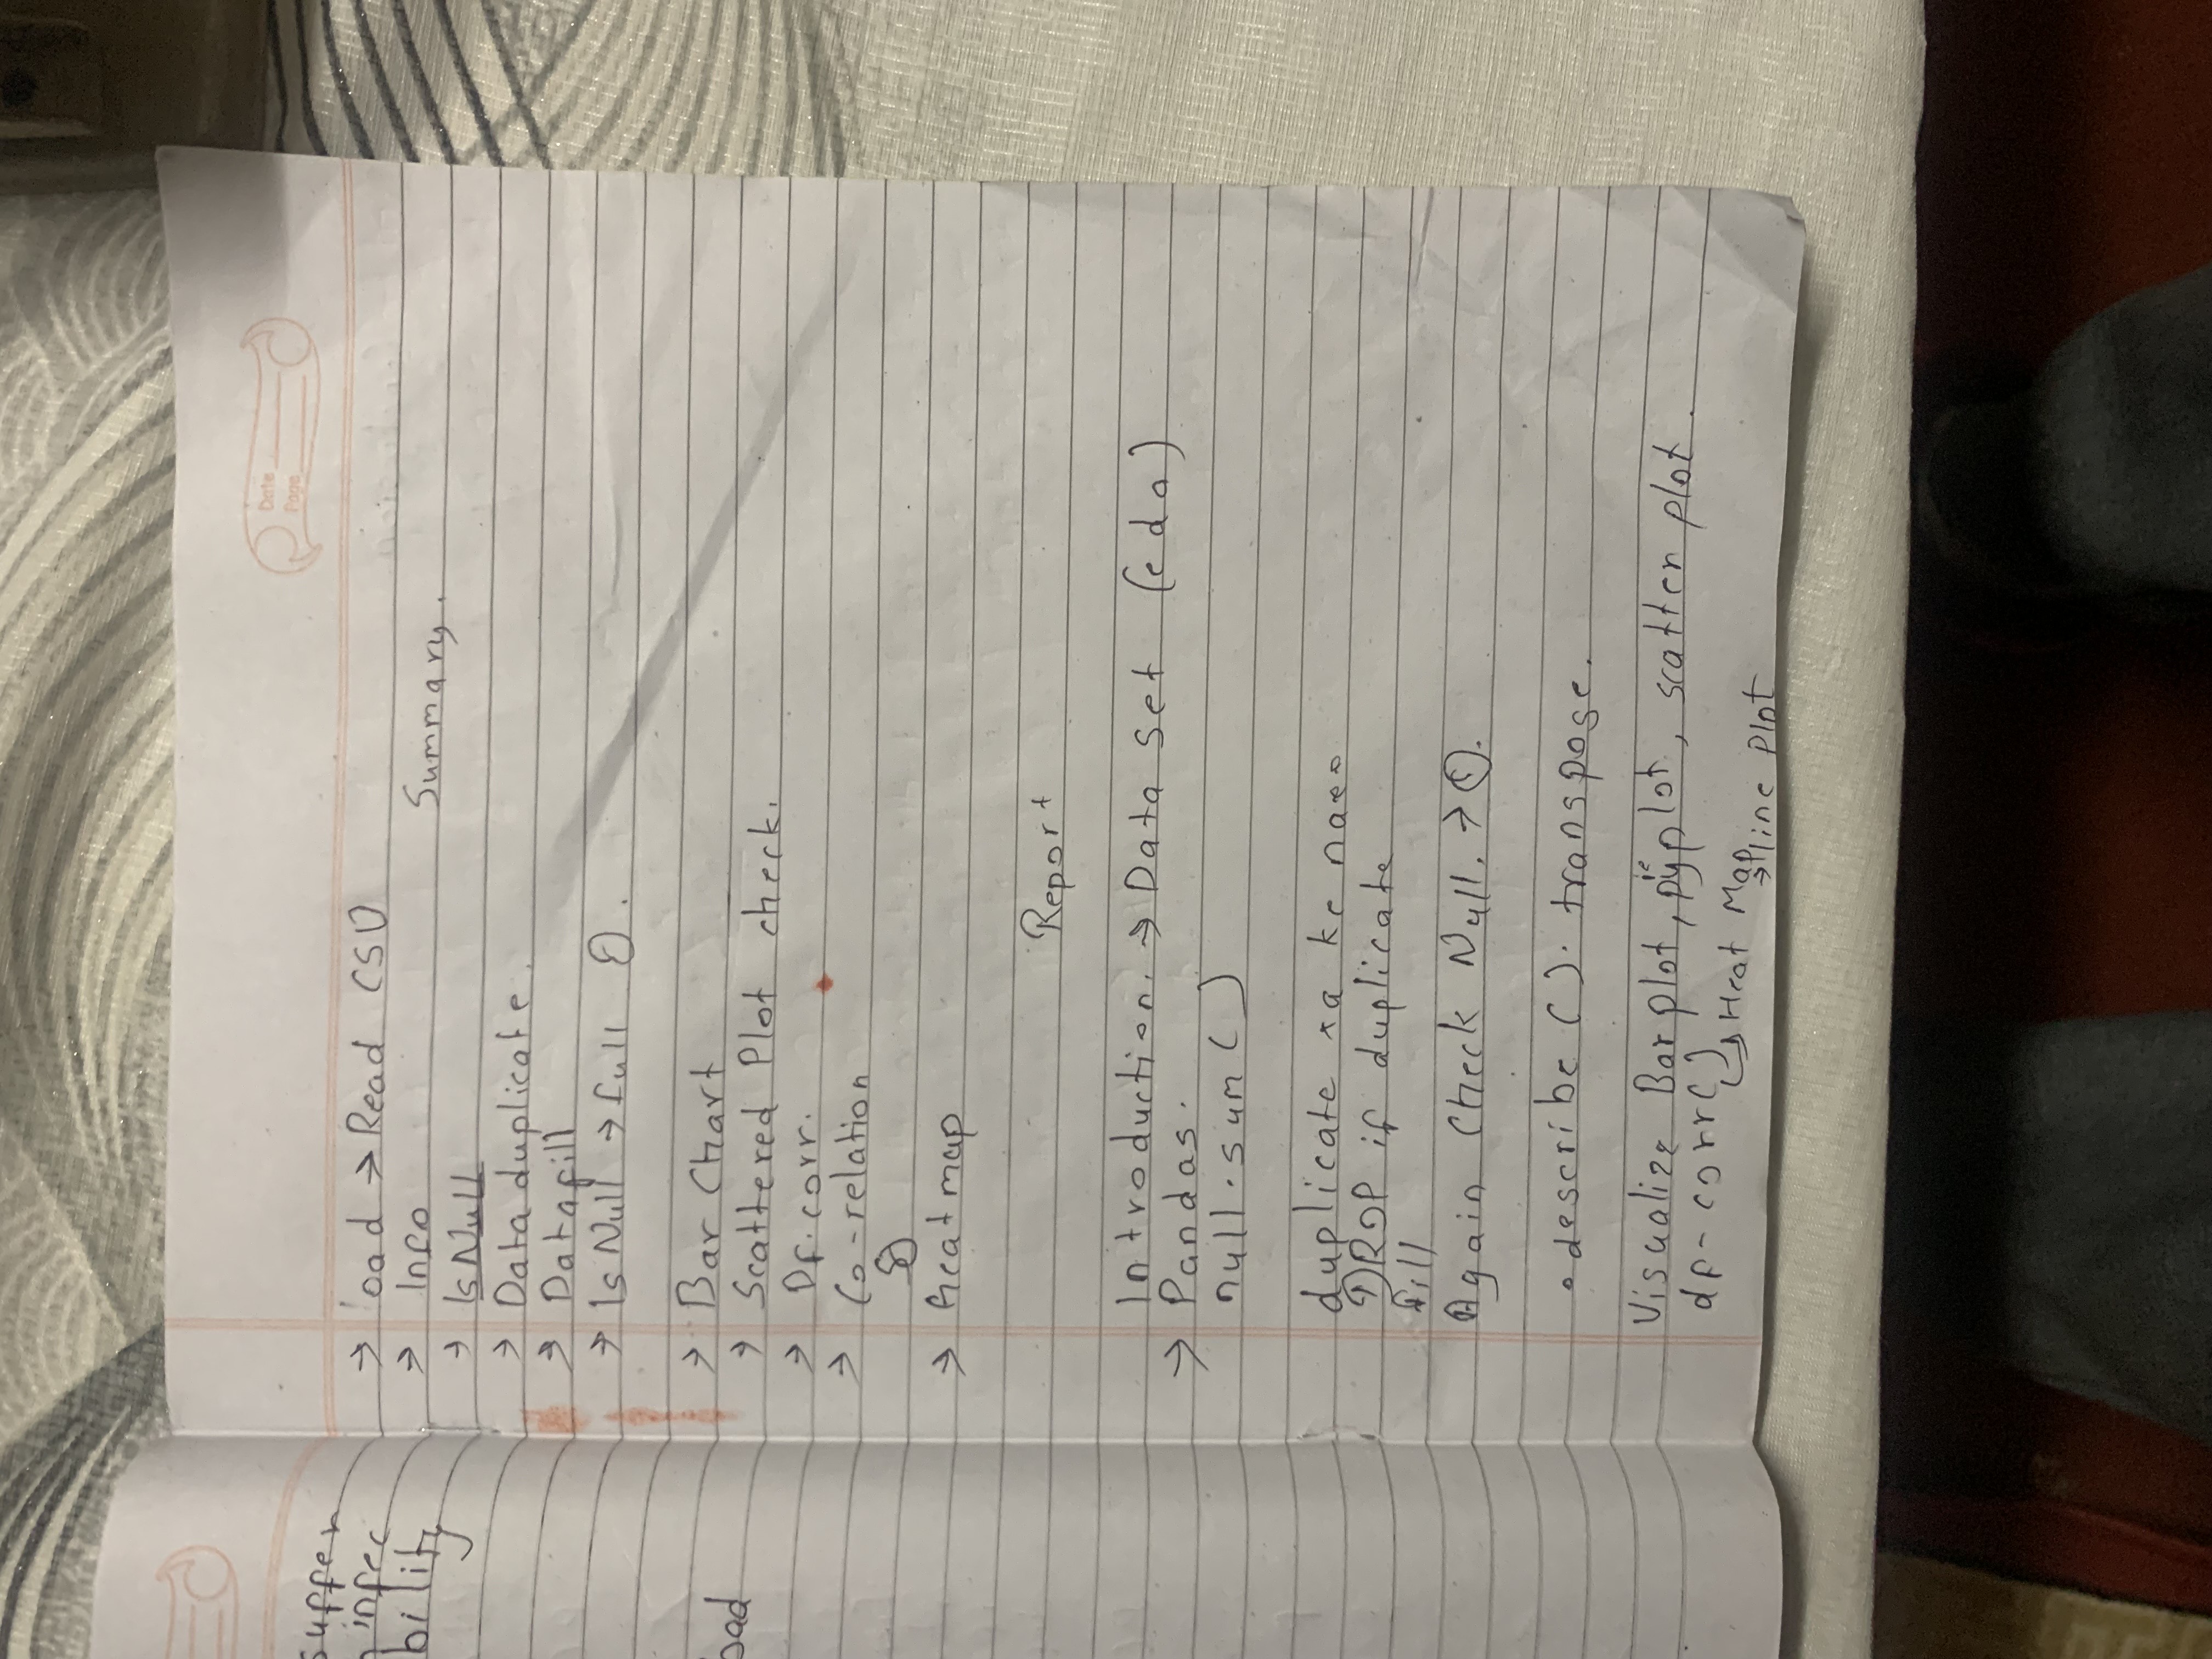 suffer
infec
bility
oad
Date
Page
→ oad → Read CSV
→ Info
Summary.
→ Is Null
→ Data duplicate.
→ Datafill
→ Is Null → full 0.
→ Bar Chart
→ Scattered Plot check.
→ Df.corr.
→ Co-relation
→ Heatmap
Report
Introduction. → Data Set (eda)
→ Pandas.
null.sum()
duplicate xa ke naeo
DROP if duplicate
fill
Again Check Null. → 0.
.describe().transpose.
Visualize Bar plot, pieplot, scatter plot.
df-corr()
→ Heat Map
→ line Plot